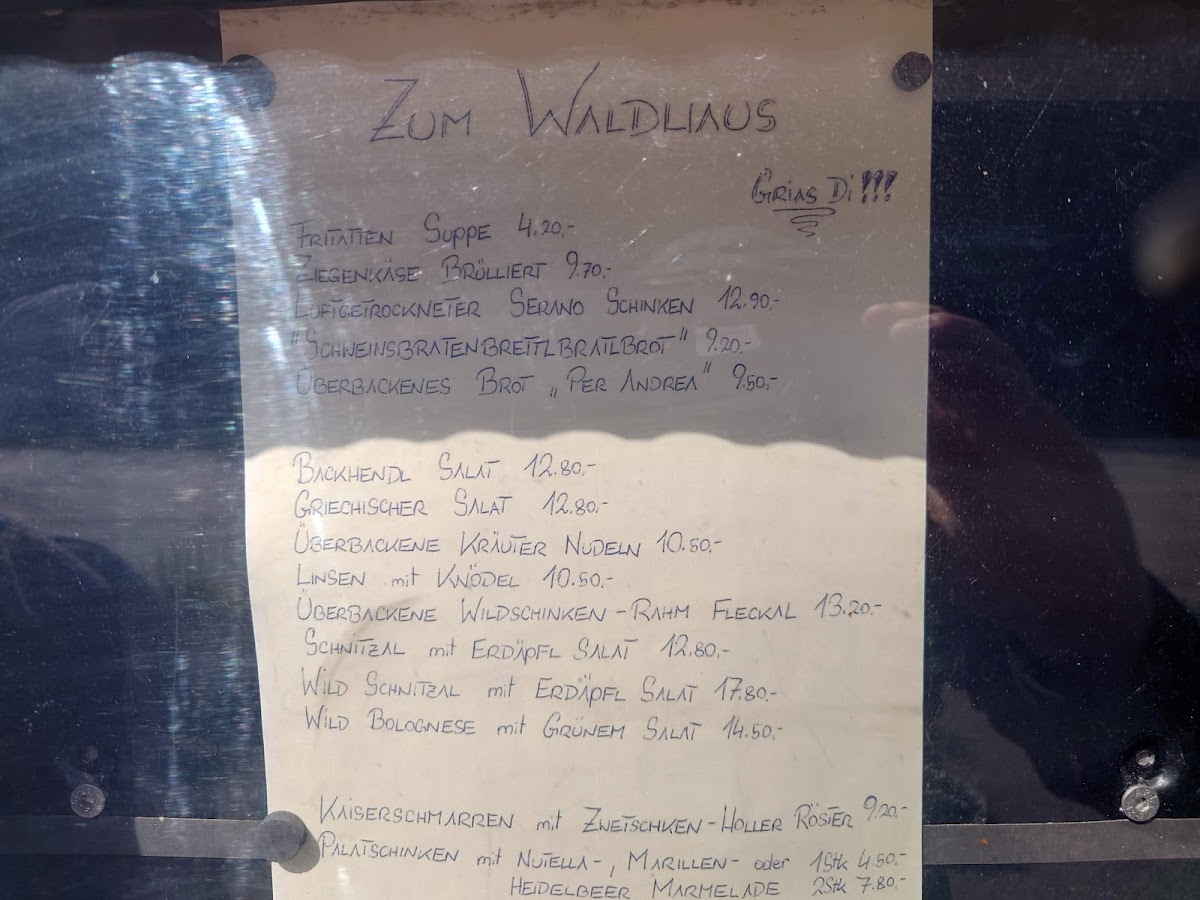 ZUM WALDHAUS
GRIAS Di!!!
FRITATTEN SUPPE 4.20,-
ZIEGENKÄSE BRÜLLIERT 9.70,-
LUFTGETROCKNETER SERANO SCHINKEN 12.90,-
"SCHWEINSBRATENBRETTLBRATLBROT" 9.20,-
ÜBERBACKENES BROT „PER ANDREA" 9.50,-
BACKHENDL SALAT 12.80,-
GRIECHISCHER SALAT 12.80,-
ÜBERBACKENE KRÄUTER NUDELN 10.50,-
LINSEN mit KNÖDEL 10.50,-
ÜBERBACKENE WILDSCHINKEN-RAHM FLECKAL 13.20,-
SCHNITZAL mit ERDÄPFL SALAT 12.80,-
WILD SCHNITZAL mit ERDÄPFL SALAT 17.80,-
WILD BOLOGNESE mit GRÜNEM SALAT 14.50,-
KAISERSCHMARREN mit ZWETSCHKEN-HOLLER RÖSTER 9.20,-
PALATSCHINKEN mit NUTELLA-, MARILLEN- oder 1Stk 4.50,-
HEIDELBEER MARMELADE 2Stk 7.80,-